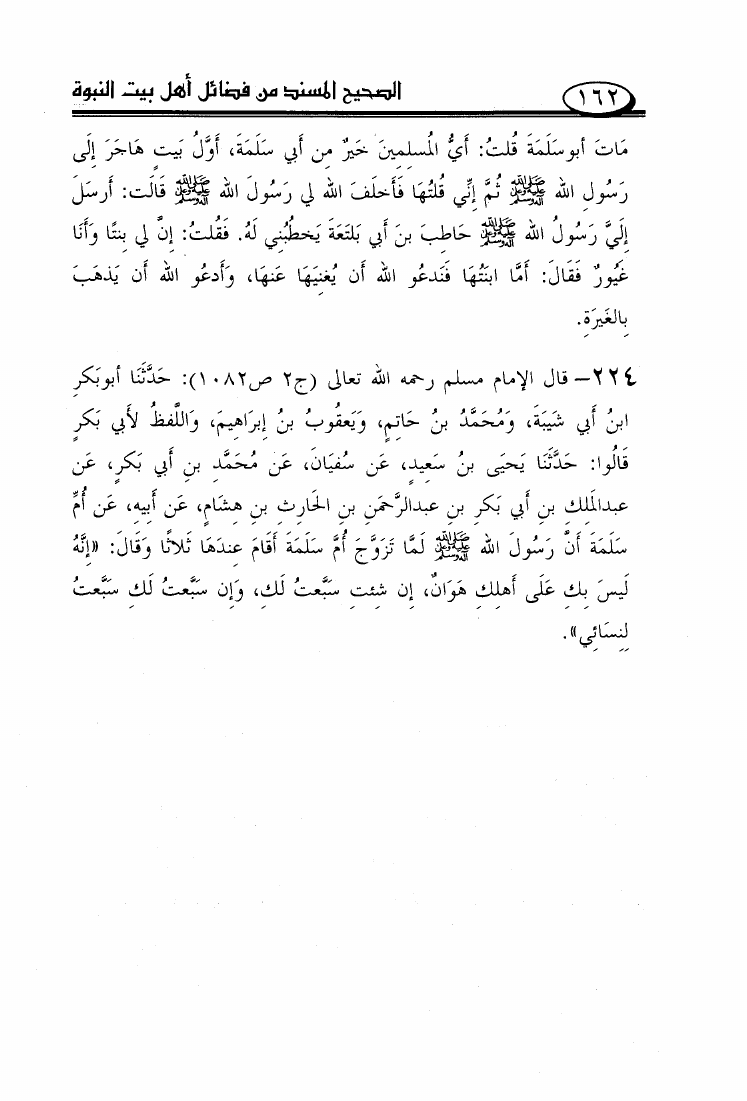 ١٦٢ الصحيح المسند من فضائل أهل بيت النبوة
مَاتَ أبو سَلَمَةَ قُلتُ: أَيُّ المُسلِمِينَ خَيرٌ مِن أَبِي سَلَمَةَ، أَوَّلُ بَيتٍ هَاجَرَ إِلَى
رَسُولِ الله ﷺ ثُمَّ إِنِّي قُلتُهَا فَأَخلَفَ الله لِي رَسُولَ الله ﷺ قَالَت: أَرسَلَ
إِلَيَّ رَسُولُ الله ﷺ حَاطِبَ بنَ أَبِي بَلتَعَةَ يَخطُبُنِي لَهُ. فَقُلتُ: إِنَّ لِي بِنتًا وَأَنَا
غَيُورٌ فَقَالَ: أَمَّا ابنَتُهَا فَنَدعُو الله أَن يُغنِيَهَا عَنهَا، وَأَدعُو الله أَن يَذهَبَ
بِالغَيرَةِ.
٢٢٤- قال الإمام مسلم رحمه الله تعالى (ج٢ ص١٠٨٢): حَدَّثَنَا أبوبَكرِ
ابنُ أَبِي شَيبَةَ، وَمُحَمَّدُ بنُ حَاتِمٍ، وَيَعقُوبُ بنُ إِبرَاهِيمَ، وَاللَّفظُ لأَبِي بَكرٍ
قَالُوا: حَدَّثَنَا يَحيَى بنُ سَعِيدٍ، عَن سُفيَانَ، عَن مُحَمَّدِ بنِ أَبِي بَكرٍ، عَن
عبدالمَلِكِ بنِ أَبِي بَكرِ بنِ عبدالرَّحمَنِ بنِ الحَارِثِ بنِ هِشَامٍ، عَن أَبِيهِ، عَن أُمِّ
سَلَمَةَ أَنَّ رَسُولَ الله ﷺ لَمَّا تَزَوَّجَ أُمَّ سَلَمَةَ أَقَامَ عِندَهَا ثَلاثًا وَقَالَ: «إِنَّهُ
لَيسَ بِكِ عَلَى أَهلِكِ هَوَانٌ، إِن شِئتِ سَبَّعتُ لَكِ، وَإِن سَبَّعتُ لَكِ سَبَّعتُ
لِنِسَائِي».